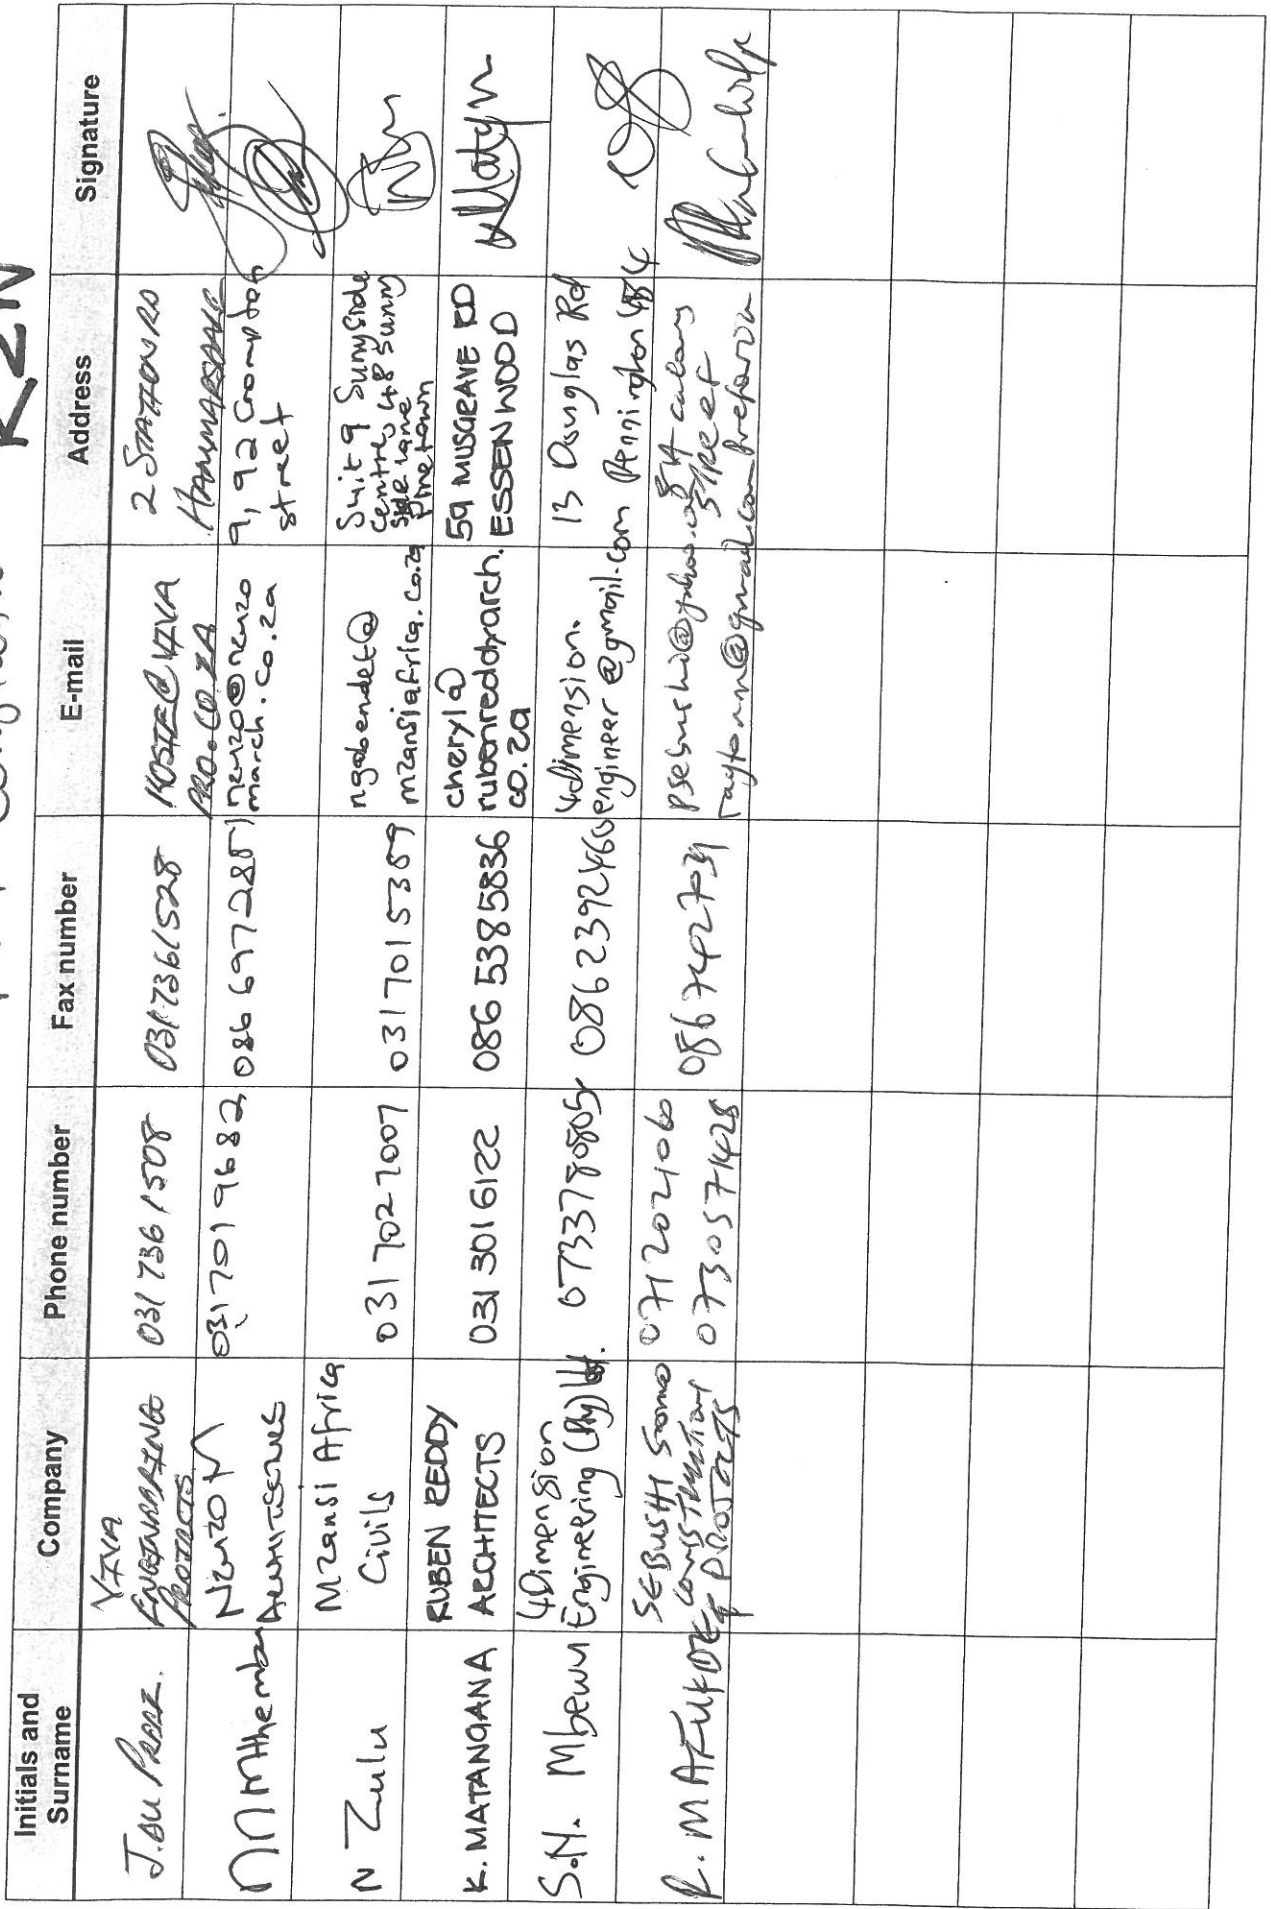 KZN
Initials and Surname Company Phone number Fax number E-mail Address Signature
J. DU PREEZ. VIVA ENGINEERING PROJECTS 031 736 1508 031 736 1528 KOSIE@VIVA PRO.CO.ZA 2 STATION RD HAMMARSDALE
N N Mthembu NZUZO M ARCHITECTURES 031 701 9682 086 697 2885 nzuzo@nzuzo march.co.za 9, 92 Crompton street
N Zulu Mzansi Africa Civils 031 702 7007 031 701 5389 ngabendet@ mzansiafrica.co.za Suit 9 Sunyside Centre, 48 Sunny side lane Pinetown
K. MATANGANA RUBEN REDDY ARCHITECTS 031 301 6122 086 538 5836 cheryl@ rubenreddyarch. co.za 59 MUSGRAVE RD ESSENWOOD
S.N. Mbewu 4Dimension Engineering (Pty) Ltd. 0733780805 0862392466 4dimension. engineer@gmail.com 13 Douglas Rd Pennington 4184
R. MAFUKDZE SEBUSHI CONSTRUCTION & PROJECTS 0712024060 0730571428 0867427031 STREET Pretoria